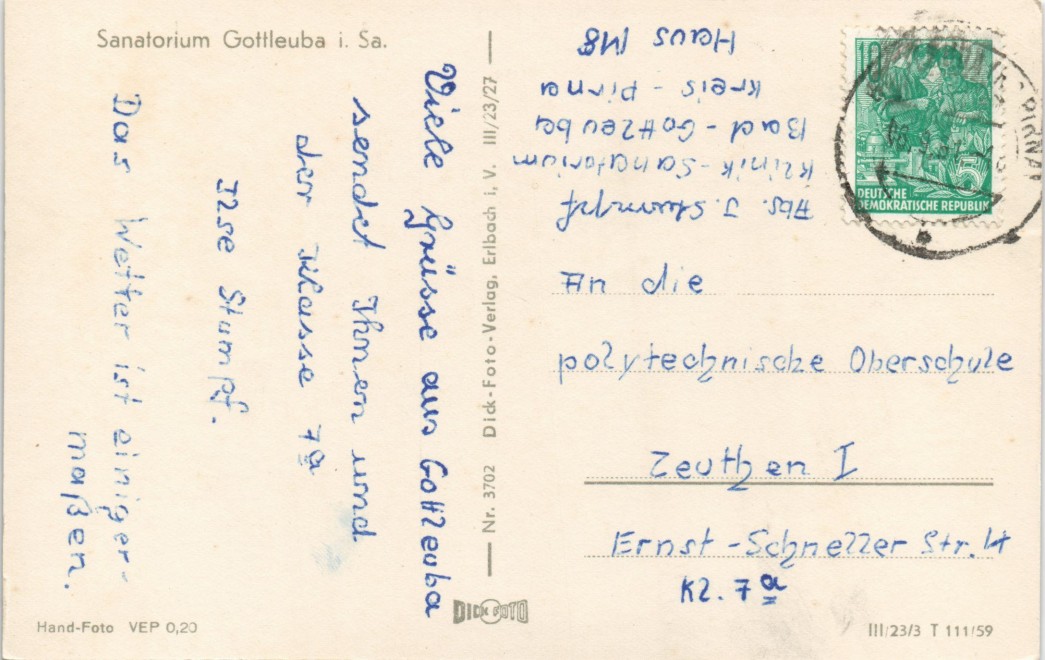 Sanatorium Gottleuba i. Sa.
Viele Grüsse aus Gottleuba
sendet Ihnen und
der Klasse 7a
Ilse Stumpf.
Das Wetter ist einiger-
maßen.
Hand-Foto VEP 0,20
Nr. 3702 Dick-Foto-Verlag, Erlbach i, V. III/23/27
DICK FOTO
Abs. I. Stumpf
Klinik-Sanatorium
Bad-Gottleuba
Kreis-Pirna
Haus M8
10
5
DEUTSCHE
DEMOKRATISCHE REPUBLIK
PIRNA
An die
polytechnische Oberschule
Zeuthen I
Ernst-Schneller Str. 14
Kl. 7a
III/23/3 T 111/59